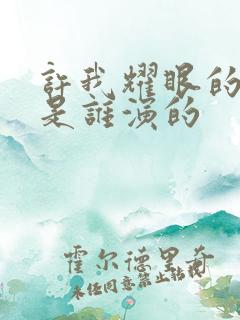 許我耀眼的
是誰演的
霍尔德里奇
未经同意禁止转载